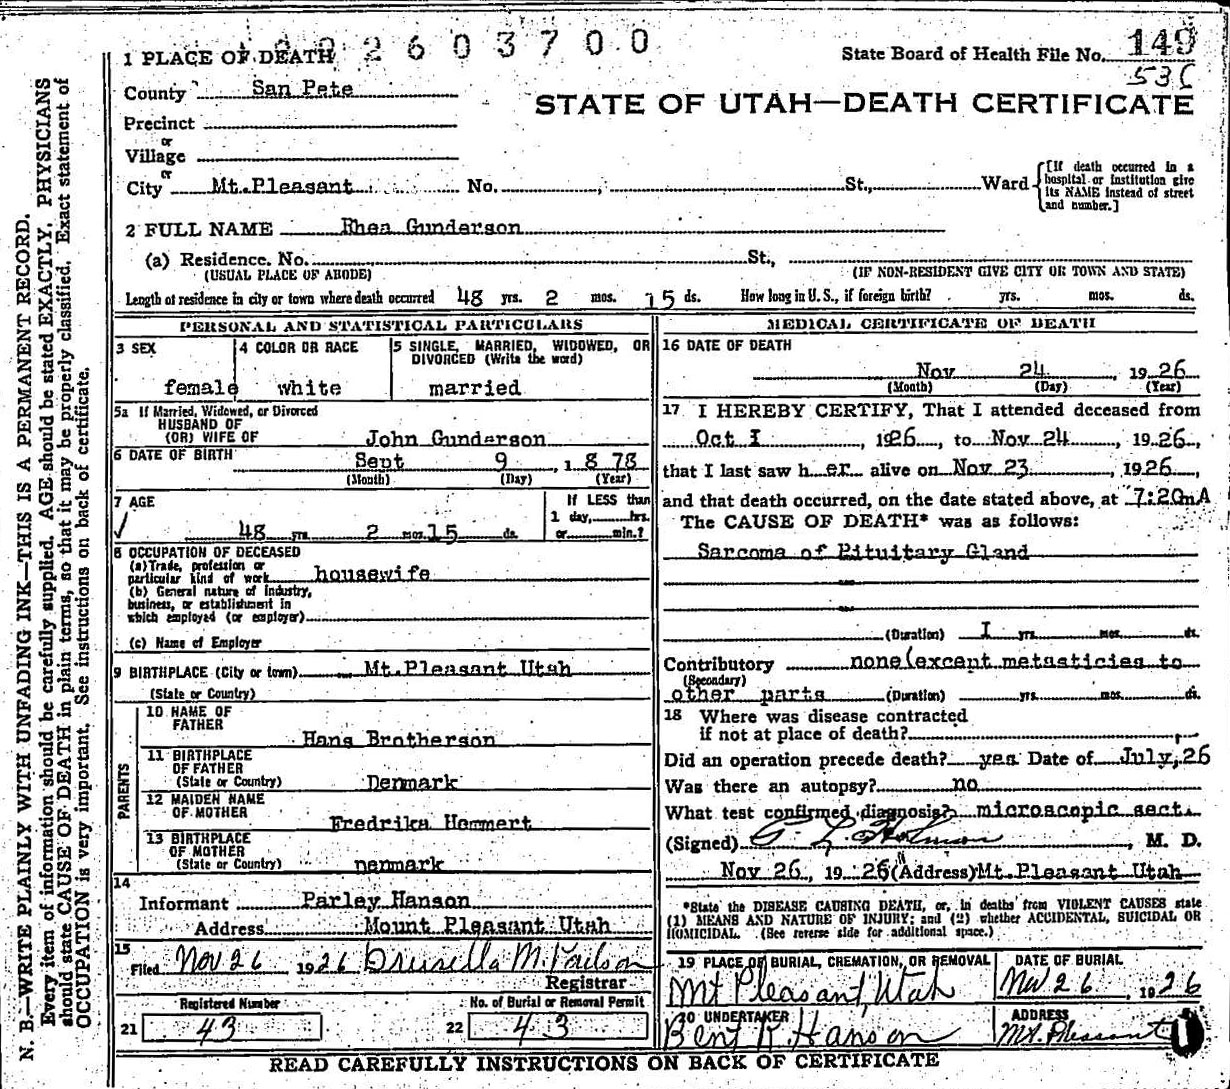 2603700
1 PLACE OF DEATH
State Board of Health File No. 149
53c
County San Pete
STATE OF UTAH—DEATH CERTIFICATE
Precinct
or
Village
or
City Mt.Pleasant No. St., Ward
[If death occurred in a hospital or institution give its NAME instead of street and number.]
2 FULL NAME Rhea Gunderson
(a) Residence. No. St.,
(USUAL PLACE OF ABODE) (IF NON-RESIDENT GIVE CITY OR TOWN AND STATE)
Length of residence in city or town where death occurred 48 yrs. 2 mos. 15 ds. How long in U. S., if foreign birth? yrs. mos. ds.
PERSONAL AND STATISTICAL PARTICULARS
3 SEX 4 COLOR OR RACE 5 SINGLE, MARRIED, WIDOWED, OR
DIVORCED (Write the word)
female white married
5a If Married, Widowed, or Divorced
HUSBAND OF
(OR) WIFE OF John Gunderson
6 DATE OF BIRTH Sept 9, 1878
(Month) (Day) (Year)
7 AGE If LESS than
48 yrs. 2 mos. 15 ds. 1 day, hrs.
or min.?
8 OCCUPATION OF DECEASED
(a) Trade, profession or
particular kind of work housewife
(b) General nature of industry,
business, or establishment in
which employed (or employer)
(c) Name of Employer
9 BIRTHPLACE (City or town) Mt.Pleasant Utah
(State or Country)
PARENTS
10 NAME OF
FATHER Hans Brotherson
11 BIRTHPLACE
OF FATHER
(State or Country) Denmark
12 MAIDEN NAME
OF MOTHER Fredrika Hemmert
13 BIRTHPLACE
OF MOTHER
(State or Country) Denmark
14
Informant Parley Hanson
Address Mount Pleasant Utah
15
Filed Nov 26 1926 Drusilla M.
Registrar
Registered Number No. of Burial or Removal Permit
21 43 22 43
MEDICAL CERTIFICATE OF DEATH
16 DATE OF DEATH
Nov 24 1926
(Month) (Day) (Year)
17 I HEREBY CERTIFY, That I attended deceased from
Oct I, 1926, to Nov 24, 1926,
that I last saw h er alive on Nov 23, 1926,
and that death occurred, on the date stated above, at 7:20mA
The CAUSE OF DEATH* was as follows:
Sarcoma of Pituitary Gland
(Duration) I yrs. mos. ds.
Contributory none(except metasticies to
(Secondary)
other parts (Duration) yrs. mos. ds.
18 Where was disease contracted
if not at place of death?
Did an operation precede death? yes Date of July,26
Was there an autopsy? no
What test confirmed diagnosis? microscopic sect.
(Signed) , M. D.
Nov 26, 1926 (Address) Mt.Pleasant Utah
*State the DISEASE CAUSING DEATH, or, in deaths from VIOLENT CAUSES state
(1) MEANS AND NATURE OF INJURY; and (2) whether ACCIDENTAL, SUICIDAL OR
HOMICIDAL. (See reverse side for additional space.)
19 PLACE OF BURIAL, CREMATION, OR REMOVAL DATE OF BURIAL
Mt Pleasant, Utah Nov 26, 1926
20 UNDERTAKER ADDRESS
Bent R. Hanson Mt. Pleasant
READ CAREFULLY INSTRUCTIONS ON BACK OF CERTIFICATE
N. B.—WRITE PLAINLY WITH UNFADING INK—THIS IS A PERMANENT RECORD.
Every item of information should be carefully supplied. AGE should be stated EXACTLY. PHYSICIANS
should state CAUSE OF DEATH in plain terms, so that it may be properly classified. Exact statement of
OCCUPATION is very important. See instructions on back of certificate.